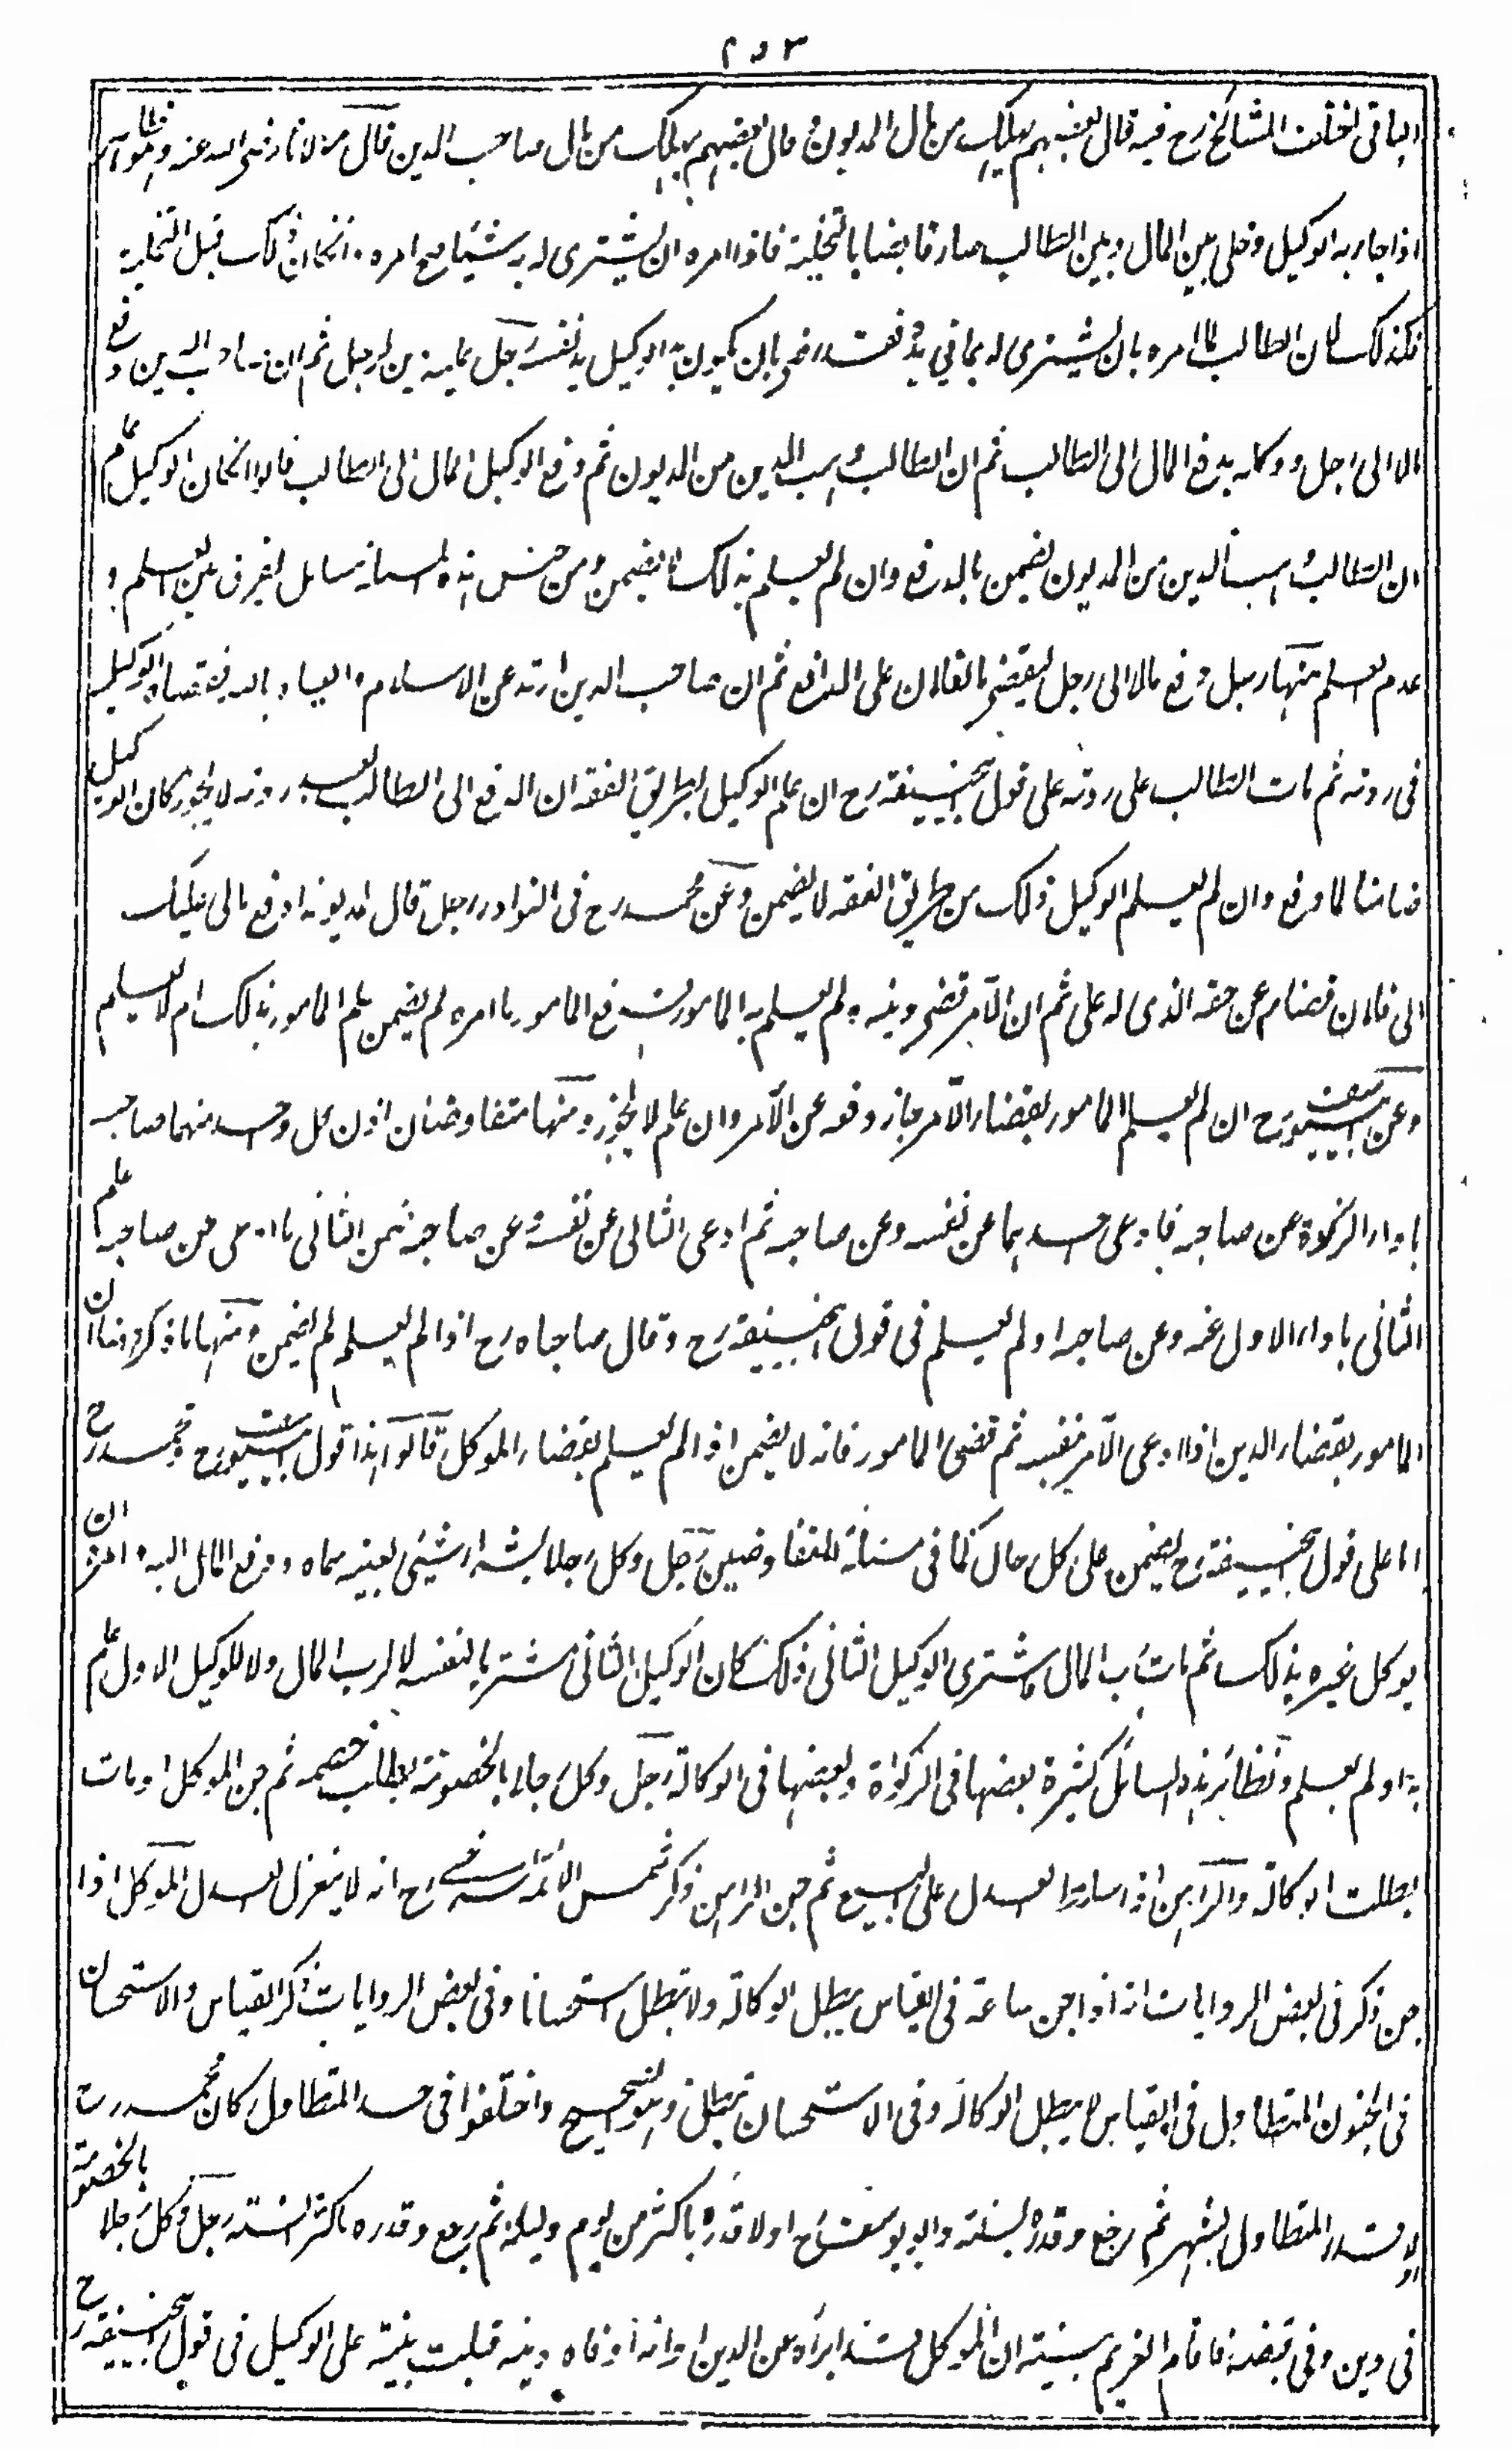 ٢٥٣
الباقى اختلف المشائخ رح فيه قال بعضهم يهلك من مال المديون وقال بعضهم يهلك من مال صاحب الدين قال مولانا رضى الله عنه وانما
اذا جاء به الوكيل وخلى بين المال وبين الطالب صار قابضا بالتخلية فاذا امره ان يشترى له به شيئا صح امره وانكان ذلك قبل التخلية
فكذلك لان الطالب لما امره بان يشترى له بما فى يده فقد رضى بان يكون يد الوكيل يد نفسه رجل عليه دين لرجل ثم ان صاحب الدين دفع
مالا الى رجل ووكله بدفع المال الى الطالب ثم ان الطالب وهب الدين من المديون ثم دفع الوكيل المال الى الطالب قالوا انكان الوكيل علم
ان الطالب وهب الدين من المديون يضمن بالدفع وان لم يعلم بذلك لا يضمن ومن جنس هذه المسئلة مسائل يفرق بين العلم و
عدم العلم منها رجل دفع مالا الى رجل ليقضى ما لفلان على الدافع ثم ان صاحب الدين ارتد عن الاسلام والعياذ بالله فقضاه الوكيل
فى ردته ثم مات الطالب على ردته على قول ابيحنيفة رح ان علم الوكيل بطريق الفقه ان الدفع الى الطالب بعد ردته لا يجوز كان الوكيل
ضامنا لما دفع وان لم يعلم الوكيل ذلك من طريق الفقه لا يضمن وعن محمد رح فى النوادر رجل قال لمديونه ادفع مالى عليك
الى فلان قضاء عن حقه الذى له على ثم ان الآمر قضى دينه ولم يعلم به المامور فدفع المامور ما امره لم يضمن علم المامور بذلك ام لا يعلم
وعن ابييوسف رح ان لم يعلم المامور بقضاء الآمر جاز دفعه عن الآمر وان علم لا يجوز ومنها متفاوضان اذن كل واحد منهما صاحبه
باداء الزكوة عن صاحبه فادى احدهما عن نفسه وعن صاحبه ثم ادى الثانى عن نفسه وعن صاحبه ضمن الثانى ما ادى عن صاحبه علم
الثانى باداء الاول عنه وعن صاحبه او لم يعلم فى قول ابيحنيفة رح وقال صاحباه رح اذا لم يعلم لم يضمن ومنها ما ذكرنا ان
المامور بقضاء الدين اذا ادى الآمر بنفسه ثم قضى المامور فانه لا يضمن اذا لم يعلم بقضاء الموكل قالوا هذا قول ابييوسف رح ومحمد رح
اما على قول ابيحنيفة رح يضمن على كل حال كما فى مسئلة المتفاوضين رجل وكل رجلا بشراء شيئ بعينه سماه ودفع المال اليه وامره ان
يوكل غيره بذلك ثم مات رب المال فاشترى الوكيل الثانى ذلك كان الوكيل الثانى مشتريا لنفسه لا لرب المال ولا للوكيل الاول علم
به او لم يعلم ونظائر هذه المسائل كثيرة بعضها فى الزكواة وبعضها فى الوكالة رجل وكل رجلا بالخصومة بطلب خصمه ثم جن الموكل او مات
بطلت الوكالة والراهن اذا سلط العدل على البيع ثم جن الراهن ذكر شمس الائمة السرخسى رح انه لا ينعزل العدل الموكل اذا
جن ذكر فى بعض الروايات انه اذا جن ساعة فى القياس يبطل الوكالة ولا تبطل استحسانا وفى بعض الروايات ذكر القياس والاستحسان
فى الجنون المتطاول فى القياس لا يبطل الوكالة وفى الاستحسان تبطل وهو الصحيح واختلفوا فى حد المتطاول كان محمد رح
اولا يقدر المتطاول بشهر ثم رجع وقدره بسنة وابو يوسف رح اولا قدره باكثر من يوم وليلة ثم رجع وقدره باكثر السنة رجل وكل رجلا بالخصومة
فى دين وفى قبضه فاقام الغريم بينة ان الموكل قد ابراه عن الدين او انه اوفاه دينه قبلت بينته على الوكيل فى قول ابيحنيفة رح